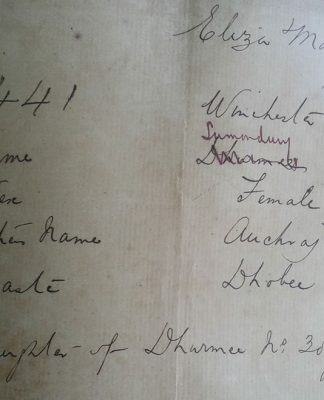 Eliza & Ma
441 Winchester
Sumondury
me Dhurmee
ex Female
hers Name Auchraj
aste Dhobee
ughter of Dhurmee No. 38